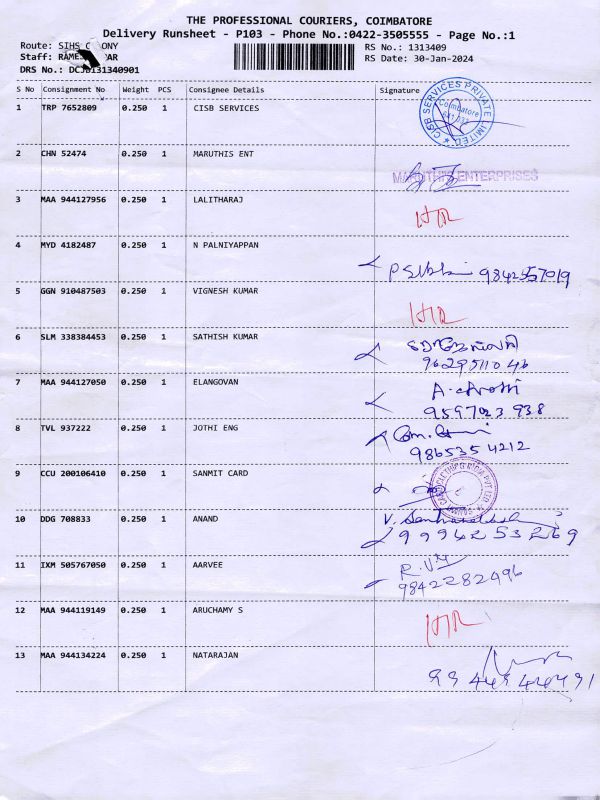 THE PROFESSIONAL COURIERS, COIMBATORE
Delivery Runsheet - P103 - Phone No.:0422-3505555 - Page No.:1
Route: SIHS COLONY
RS No.: 1313409
Staff:
RS Date: 30-Jan-2024
DRS No.:
S No Consignment No Weight PCS Consignee Details Signature
1 TRP 7652809 0.250 1 CISB SERVICES
CISB SERVICES PRIVATE LIMITED
Coimbatore
641 033
2 CHN 52474 0.250 1 MARUTHIS ENT
MARUTHIS ENTERPRISES
3 MAA 944127956 0.250 1 LALITHARAJ
H/R
4 MYD 4182487 0.250 1 N PALNIYAPPAN
9842557019
5 GGN 910487503 0.250 1 VIGNESH KUMAR
H/R
6 SLM 338384453 0.250 1 SATHISH KUMAR
9629511046
7 MAA 944127050 0.250 1 ELANGOVAN
9597023938
8 TVL 937222 0.250 1 JOTHI ENG
9865354212
9 CCU 200106410 0.250 1 SANMIT CARD
10 DDG 708833 0.250 1 ANAND
9994253269
11 IXM 505767050 0.250 1 AARVEE
9842282496
12 MAA 944119149 0.250 1 ARUCHAMY S
H/R
13 MAA 944134224 0.250 1 NATARAJAN